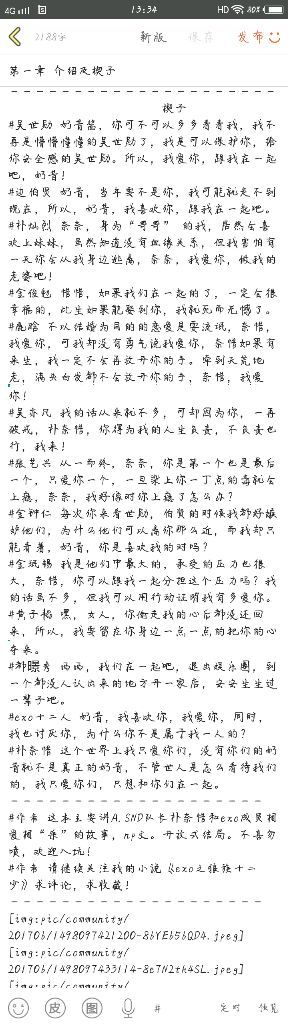 4G 13:34 HD 80%
2188字 新版 保存 发布
第一章 介绍及楔子
楔子
#吴世勋 奶昔酱，你可不可以多多看看我，我不
再是懵懵懂懂的吴世勋了，我是可以保护你，给
你安全感的吴世勋。所以，我爱你，跟我在一起
吧，奶昔！
#边伯贤 奶昔，当年要不是你，我可能就走不到
现在，所以，奶昔，我喜欢你，跟我在一起吧。
#朴灿烈 奈奈，身为“哥哥” 的我，居然会喜
欢上妹妹，虽然知道没有血缘关系，但我害怕有
一天你会从我身边逃离，奈奈，我爱你，做我的
老婆吧！
#金俊勉 惜惜，如果我们在一起的了，一定会很
幸福的，此生如果能娶到你，我就死而无憾了。
#鹿晗 不以结婚为目的的恋爱是耍流氓，奈惜，
我爱你，可我却没有勇气说我爱你，奈惜如果有
来生，我一定不会再放开你的手。牵到天荒地
老，满头白发都不会放开你的手，奈惜，我爱
你！
#吴亦凡 我的话从来就不多，可却因为你，一再
破戒，朴奈惜，你得为我的人生负责，不负责也
行，我来！
#张艺兴 从一而终，奈奈，你是第一个也是最后
一个，只爱你一个，一旦染上你一丁点的毒就会
上瘾，奈奈，我好像对你上瘾了怎么办？
#金钟仁 每次你来看世勋，伯贤的时候我都好嫉
妒他们，为什么他们可以离你那么近，而我却只
能看着，奶昔，你是喜欢我的对吗？
#金珉锡 我是他们中最大的，承受的压力也很
大，奈惜，你可以跟我一起分担这个压力吗？我
的话虽不多，但我可以用行动证明我有多爱你。
#黄子韬 嘿，女人，你偷走我的心后都没还回
来，所以，我要留在你身边一点一点的把你的心
夺来。
#都暻秀 西西，我们在一起吧，退出娱乐圈，到
一个都没人认出来的地方开一家店，安安生生过
一辈子吧。
#exo十二人 奶昔，我喜欢你，我爱你，同时，
我也讨厌你，为什么你不是属于我一人的？
#朴奈惜 这个世界上我只爱你们，没有你们的奶
昔就不是真正的奶昔，不管世人是怎么看待我们
的，我只爱你们，只想和你们在一起。
#作者 这本主要讲A.SND队长朴奈惜和exo成员相
爱相“杀”的故事，np文。开放式结局。不喜勿
喷，欢迎入坑！
#作者 请继续关注我的小说《exo之雅雅十二
少》求评论，求收藏！
[img:pic/community/
20170b/1498097421200-8bYEb5bQD4.jpeg]
[img:pic/community/
20170b/1498097433114-8e7N2th4SL.jpeg]
[img:pic/community/
皮 图 # 定时 预览